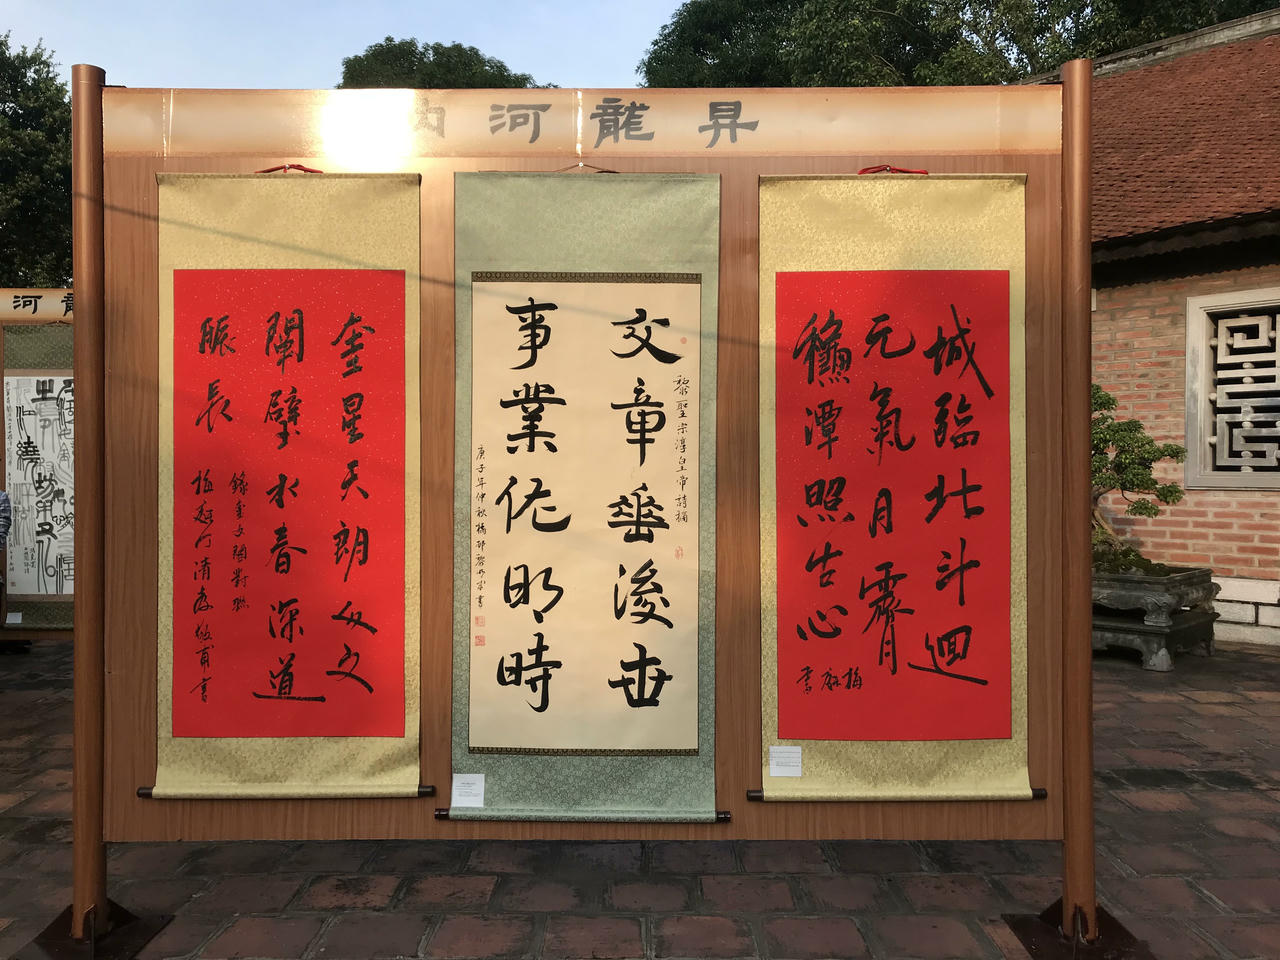 昇龍河內
城臨北斗迴
元氣月
龝潭照古心
書
文章垂後世
黎聖宗淳皇帝詩摘
事業佐明時
庚子年仲秋梅邨黎書
奎星天朗人文
闡壁水春深道
脈長
錄奎文閣對聯
梅清書
河龍